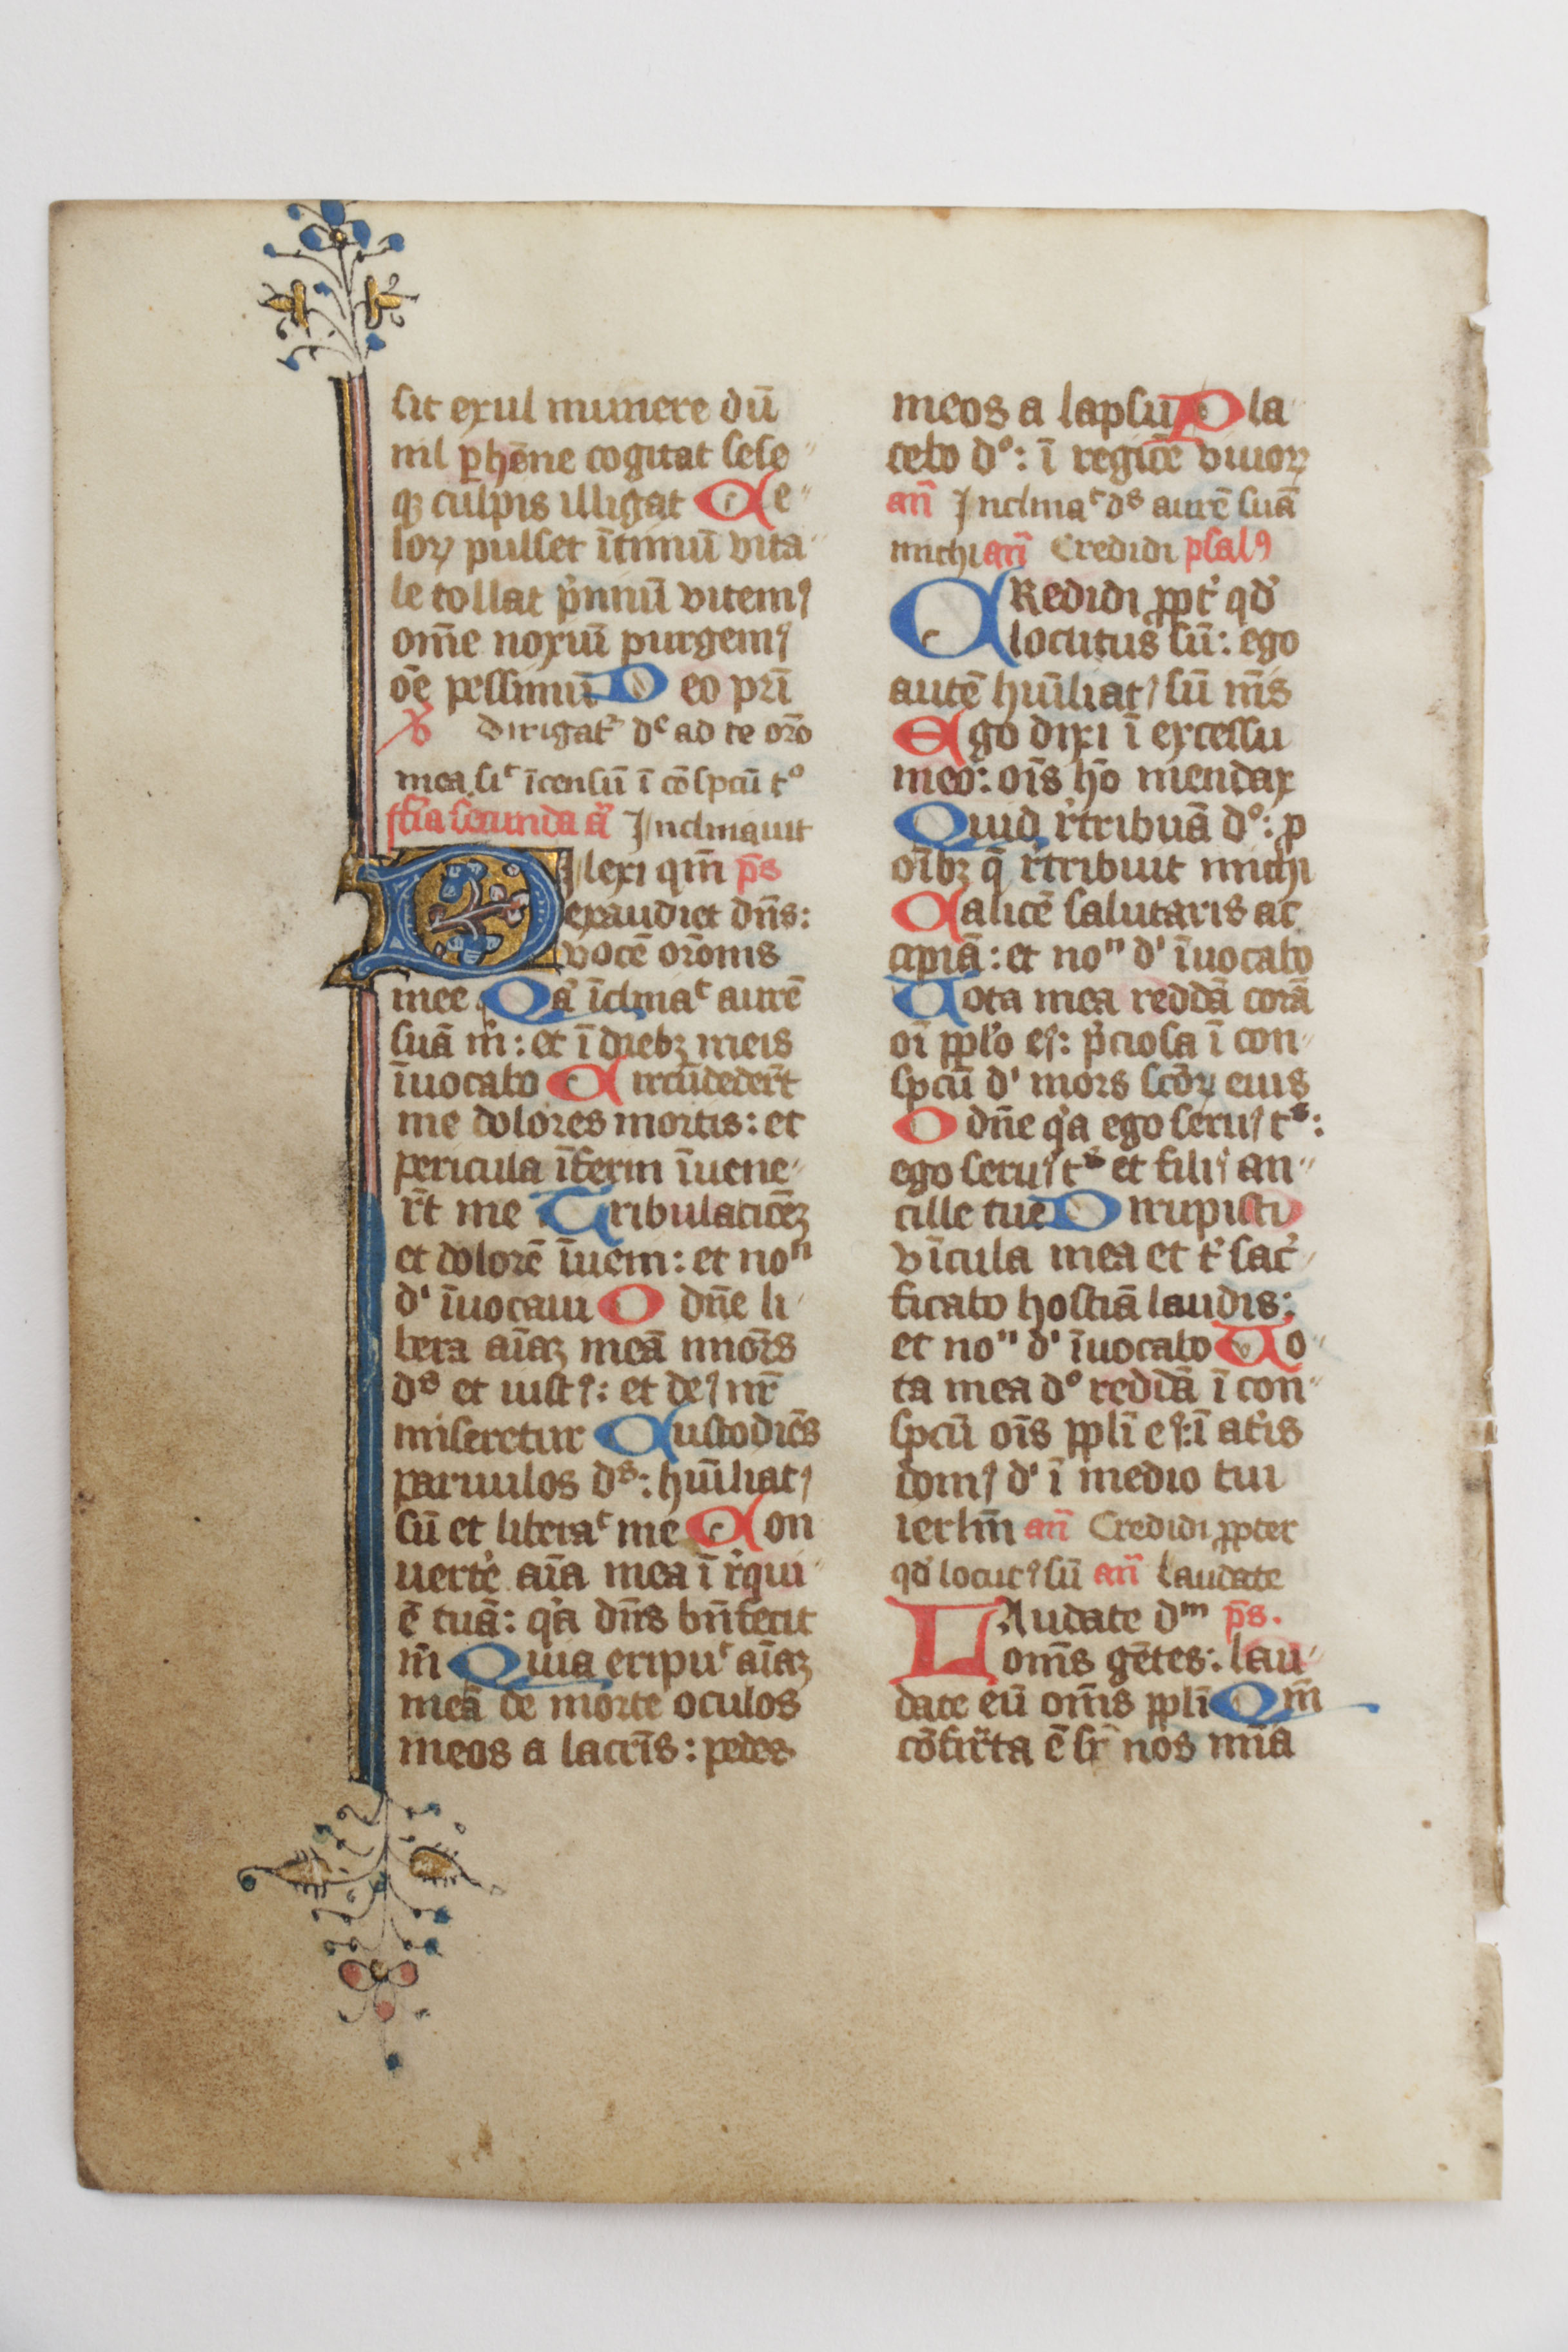 sit exul munere dū
nil ꝑhēne cogitat sese
qꝫ culpis illigat Ce
loꝝ pulset ītimū vita
le tollat p̓miū vitemꝯ
om̄e noxiū purgemꝯ
ōe pessimū Deo pr̄i
℣ Dirigat᷑ dᵉ ad te or̄o
mea siᶜ īcensū ī cōspcū tᵒ
ffia secunda a᷑ Inclinauit
Dilexi qm̄ p̄s
exaudiet dn̄s:
vocē or̄onis
mee Qa̓ īclinaᶜ aurē
suā m̓: et ī diebꝫ meis
īuocabo Circūdeder̄t
me dolores mortis: et
pericula īferni īuene
r̄t me Tribulaticēꝫ
et dolorē īueni: et noⁿ
dᶦ īuocaui O dn̄e li
bera aīaꝫ meā mic̄rs
dˢ et iustꝯ: et deꝯ nr̄
miseretur Custodiēs
paruulos dˢ: hūiliatꝯ
sū et liberaᶜ me Con
uerte̓ aīa mea ī r̓qui
ē tuā: qa̓ dn̄s bn̄fecit
m̓ Quia eripuᶜ aīaꝫ
meā de morte oculos
meos a lacrīs: pedes
meos a lapsu Pla
cebo dᵒ: ī regiōe viuoꝝ
an̄ Inclinaᶜ dˢ aurē suā
michi an̄ Credidi psalꝯ
CRedidi ꝓpt̓ qd̓
locutus sū: ego
autē hūiliatꝯ sū nīs
Ego dixi ī excessu
meo: oīs hō mendax
Quid r̓tribuā dᵒ: ꝓ
oībꝫ q̄ r̓tribuit michi
Calicē salutaris ac
cipiā: et noⁿ dᶦ īuocabo
Uota mea reddā corā
oī ppl̓o eꝯ: p̓ciosa ī con
spcū dᶦ mors sc̄oꝝ eius
O dn̄e qa̓ ego seruꝯ tˢ:
ego seruꝯ tˢ et filiꝯ an
cille tue Dirupisti
vīcula mea et t̓ sac̓
ficabo hostiā laudis:
et noⁿ dᶦ īuocabo Uo
ta mea dᵒ reddā ī con
spcū oīs ppl̄i eꝯ: ī at̓is
domꝯ dᶦ ī medio tui
ierl̄m an̄ Credidi ꝓpter
qd̓ locutꝯ sū an̄ Laudate
LAudate dᵐ p̄s.
om̄s gētes: lau
date eū om̄s ppl̄i Qm̄
cōfir̓ta ē sr̄ nos mīa